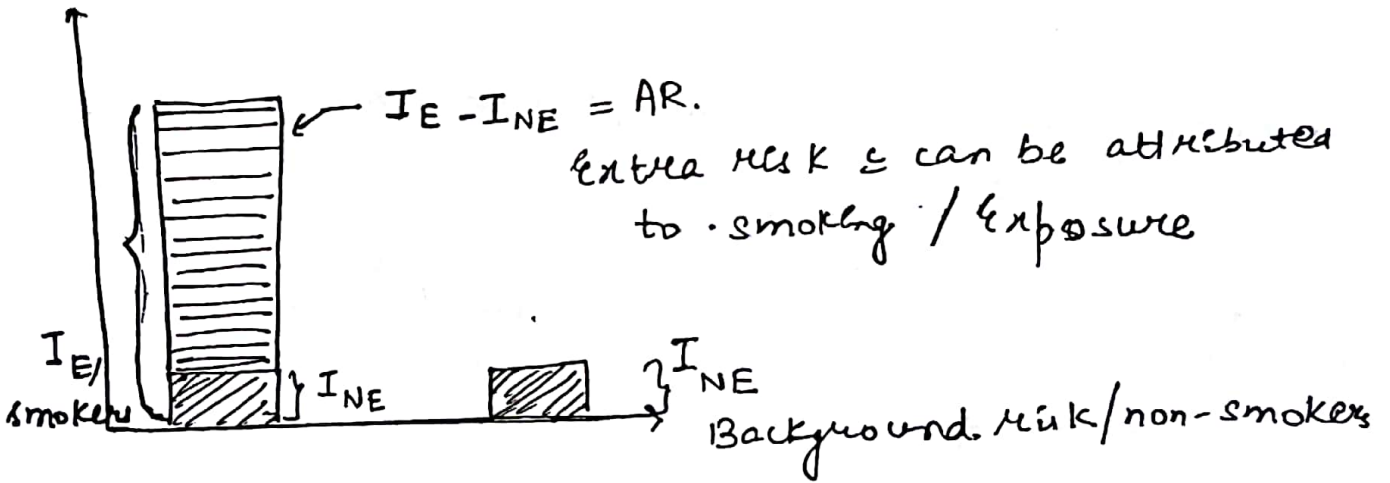 I_E - I_NE = AR.
Extra risk c̄ can be attributed
to smoking / Exposure
I_E/
smokers
I_NE
I_NE
Background risk/non-smokers